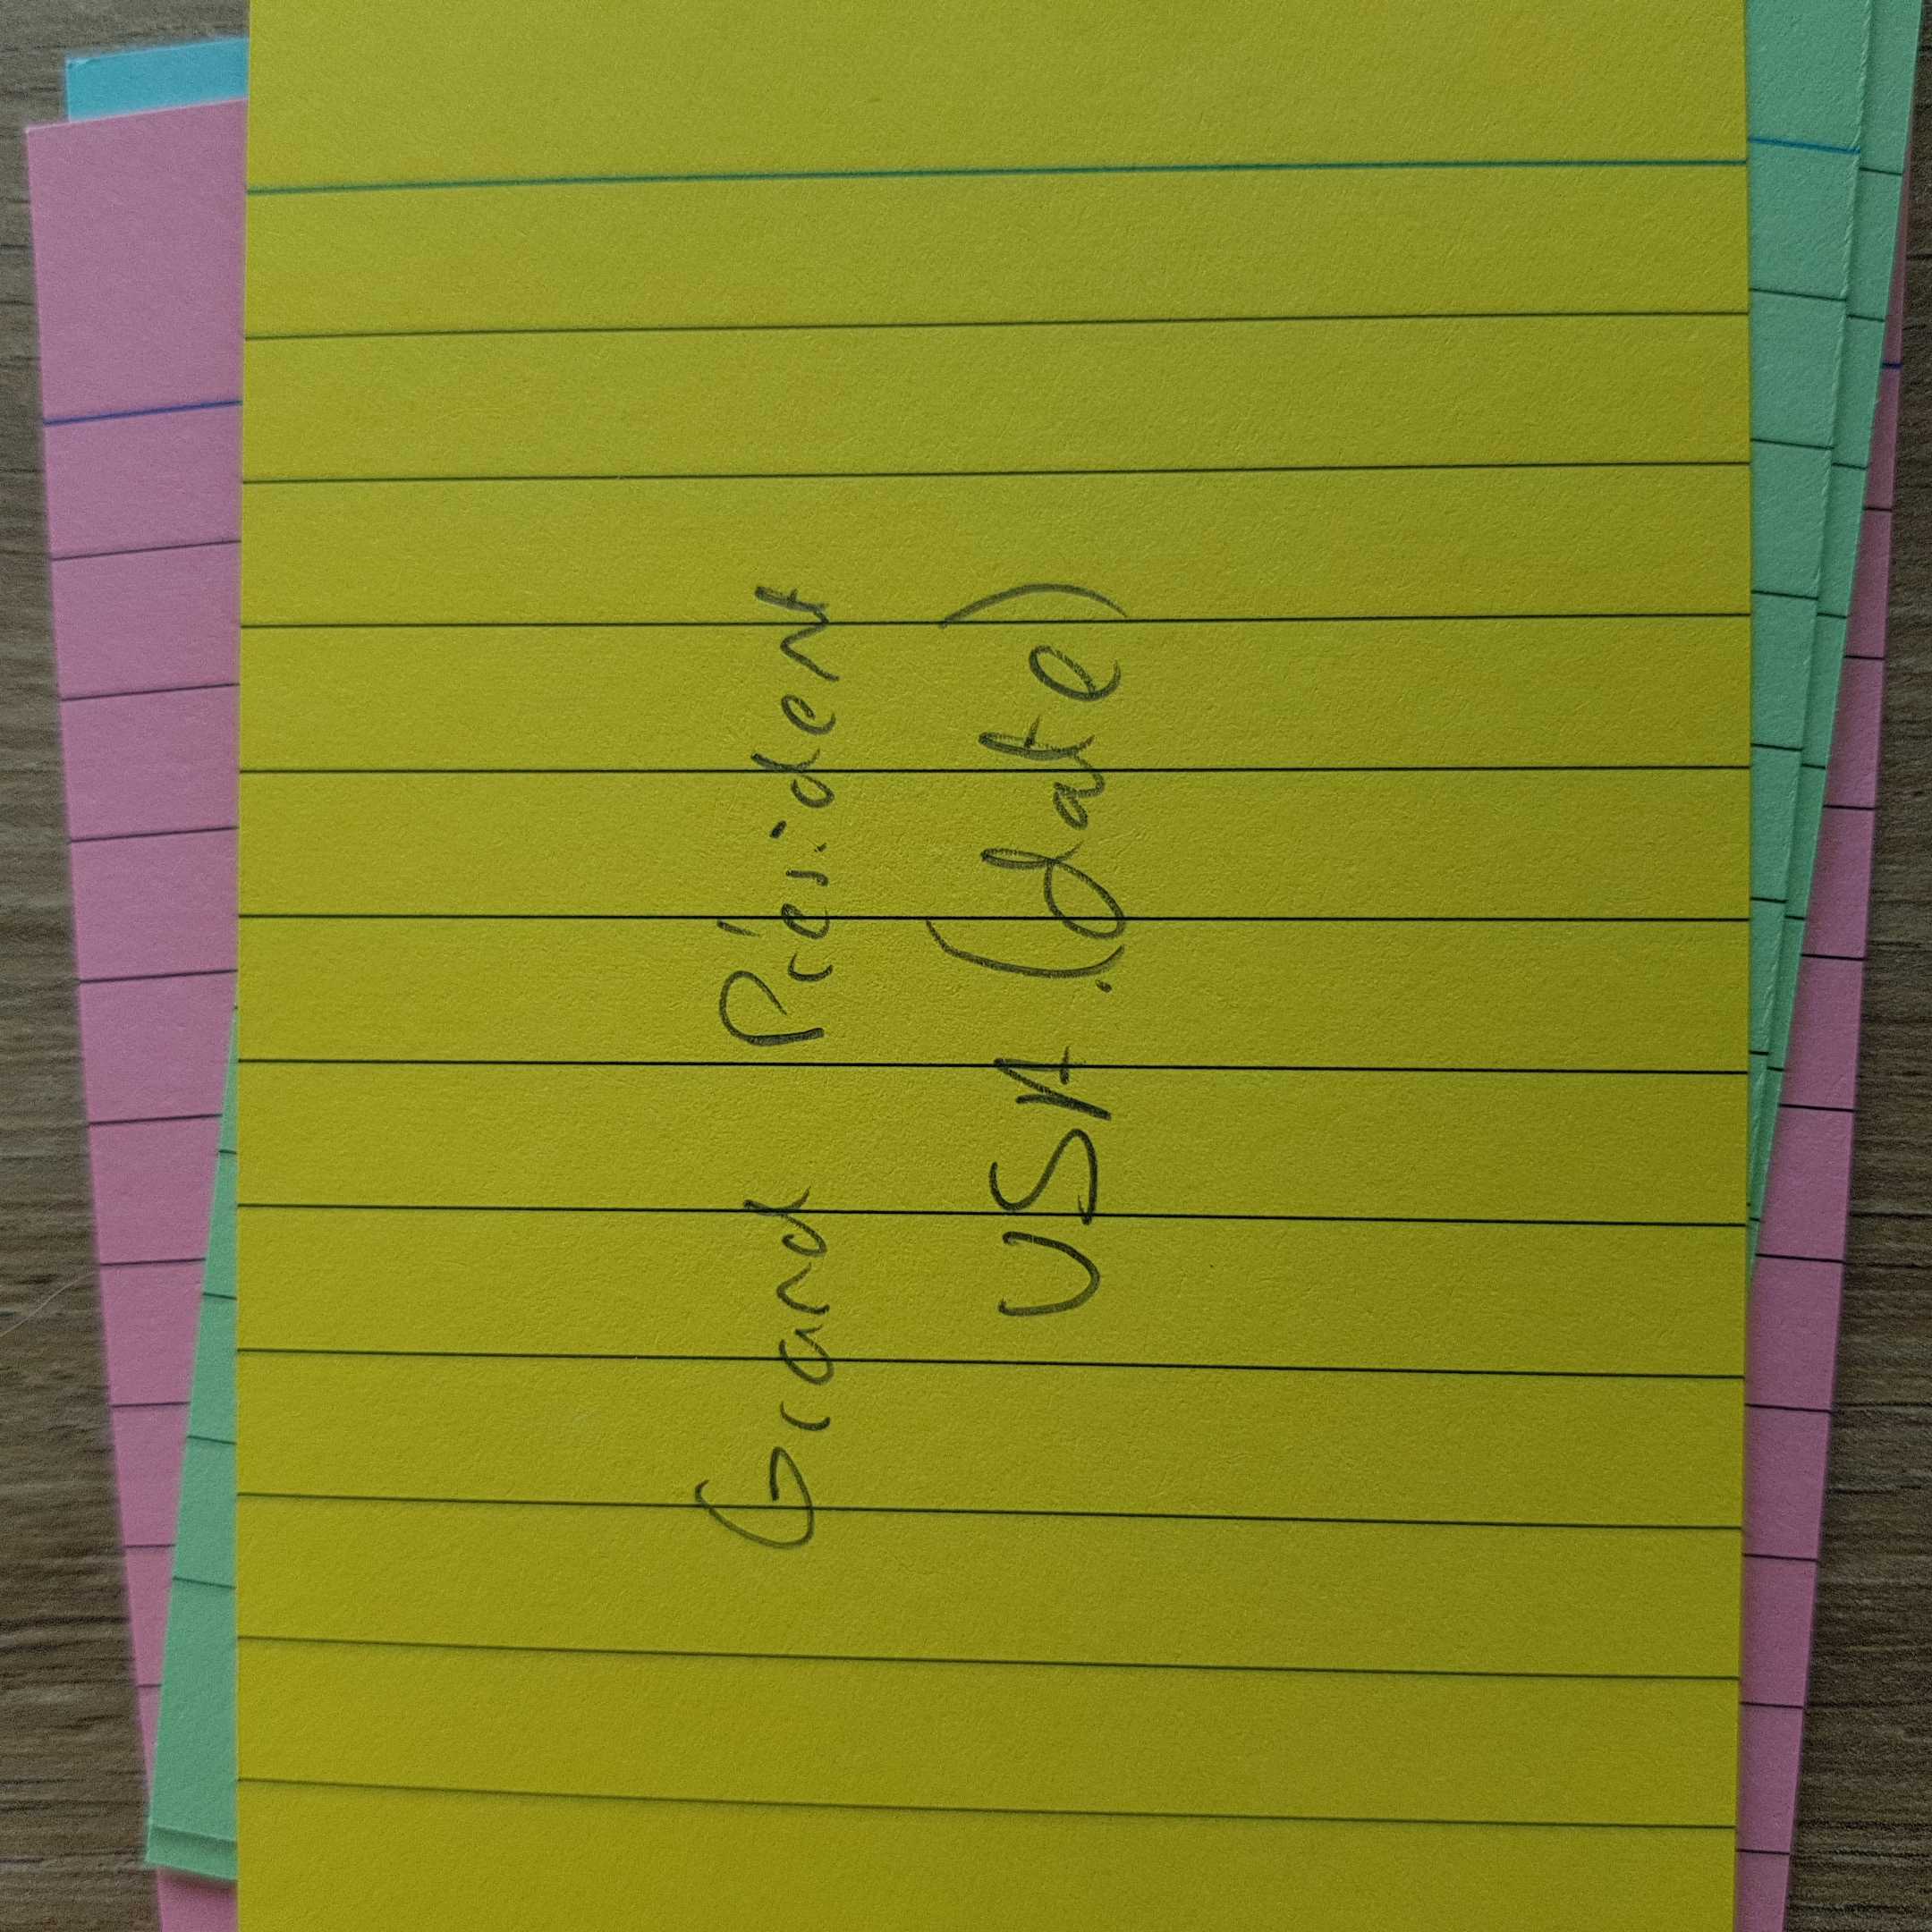 Grand Président
USA. (date)